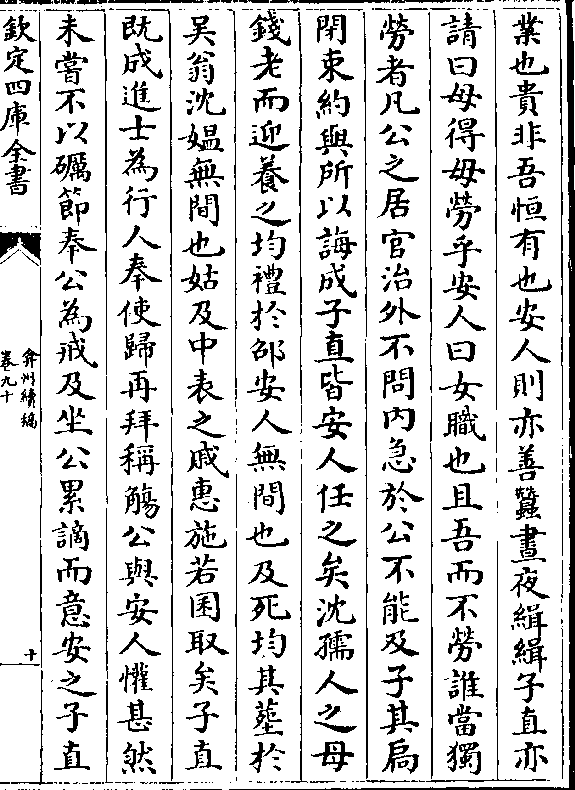 業也貴非吾恒有也安人則亦善蠶晝夜緝緝子直亦
請曰母得毋勞乎安人曰女職也且吾而不勞誰當獨
勞者凡公之居官治外不問内急於公不能及子其扄
閉束約與所以誨成子直皆安人任之矣沈孺人之母
錢老而迎養之均禮於邵安人無間也及死均其塟於
吴翁沈媪無間也姑及中表之戚惠施若囷取矣子直
既成進士為行人奉使歸再拜稱觴公與安人懽甚然
未嘗不以礪節奉公為戒及坐公累謫而意安之子直
欽定四庫全書
弇州續編
卷九十
十